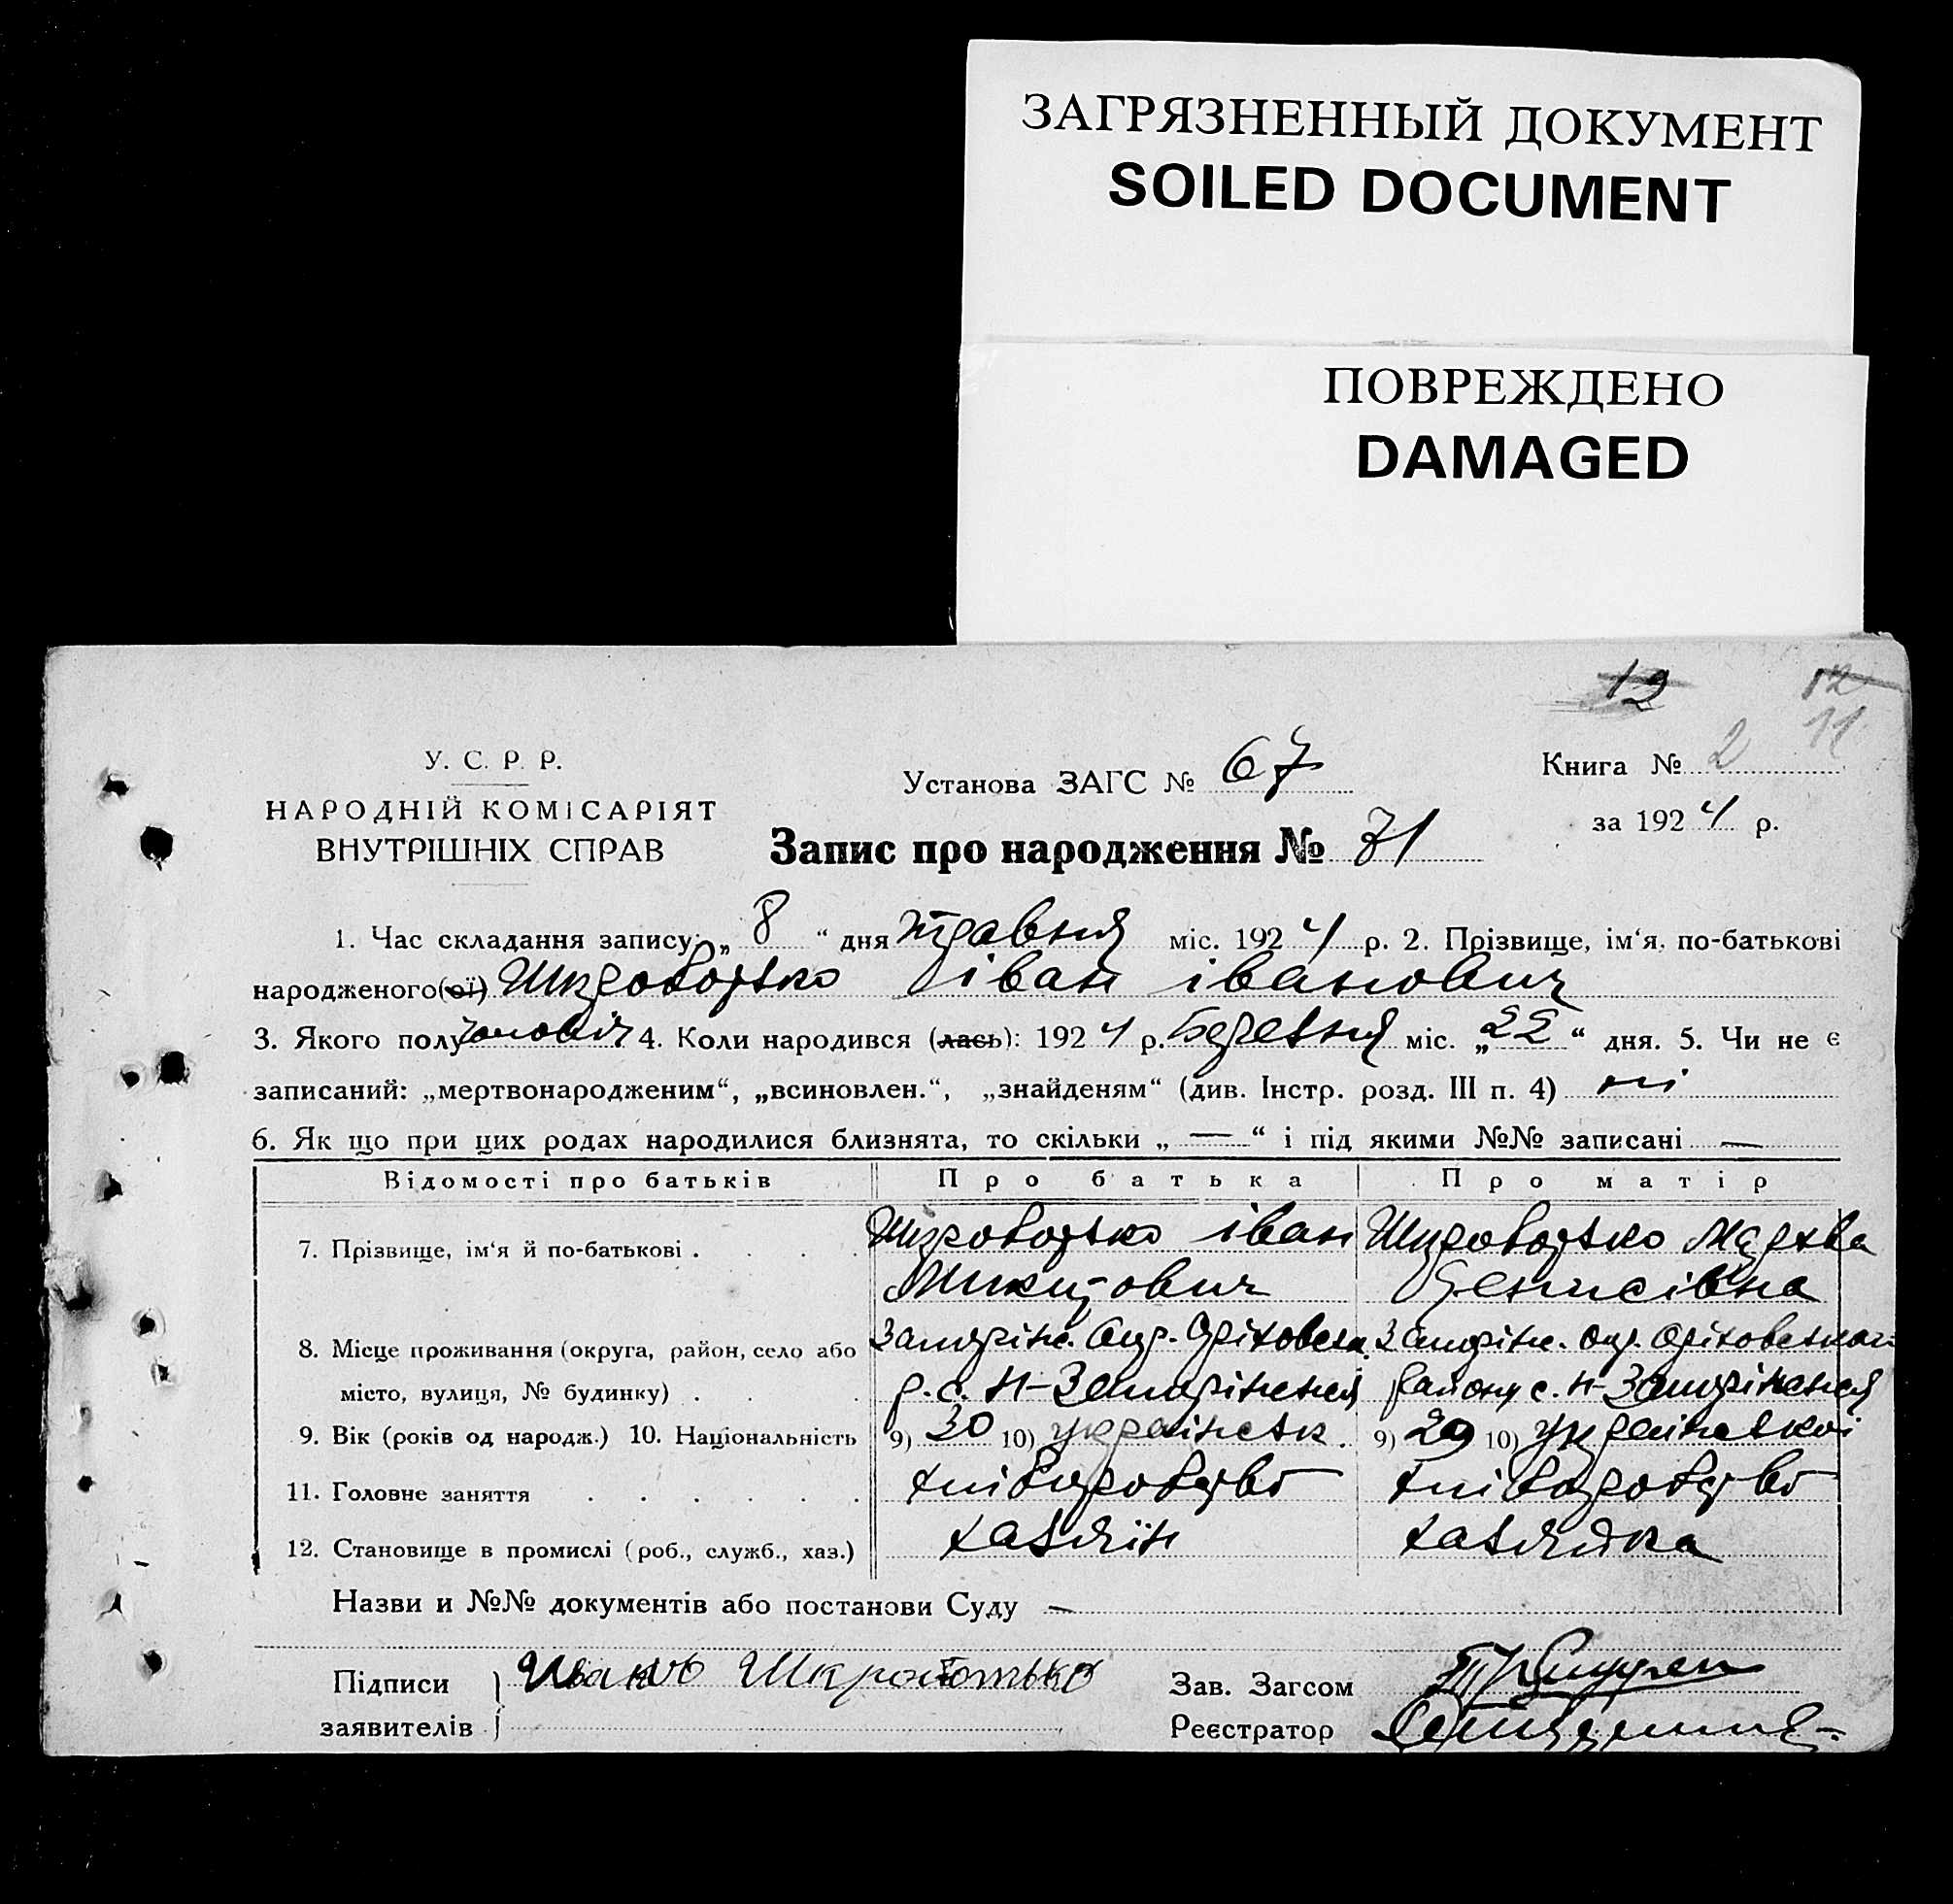 ЗАГРЯЗНЕННЫЙ ДОКУМЕНТ
SOILED DOCUMENT
ПОВРЕЖДЕНО
DAMAGED
12 12
11
У. С. Р. Р.
НАРОДНІЙ КОМІСАРІЯТ
ВНУТРІШНІХ СПРАВ
Установа ЗАГС № 67
Книга № 2
за 1924 р.
Запис про народження № 71
1. Час складання запису: „ 8 “ дня травня міс. 1924 р. 2. Прізвище, ім‘я, по-батькові
народженого(ої) іван іванович
3. Якого полу 4. Коли народився (лась): 1924 р. Березня міс. „ 22 “ дня. 5. Чи не є
записаний: „мертвонародженим“, „всиновлен.“, „знайденям“ (див. Інстр. розд. III п. 4) ні
6. Як що при цих родах народилися близнята, то скільки „ — “ і під якими №№ записані —
Відомості про батьків Про батька Про матір
7. Прізвище, ім‘я й по-батькові . . . . іван
Микитович Денисівна
8. Місце проживання (округа, район, село або
місто, вулиця, № будинку) . . . р. с. району с.
9. Вік (років од народж.) 10. Національність 9) 30 10) українськ. 9) 29 10) української
11. Головне заняття . . . . . . хліборобство хліборобство
12. Становище в промислі (роб., служб., хаз.) хазяїн хазяйка
Назви и №№ документів або постанови Суду —
Підписи
заявителів
Зав. Загсом
Реєстратор